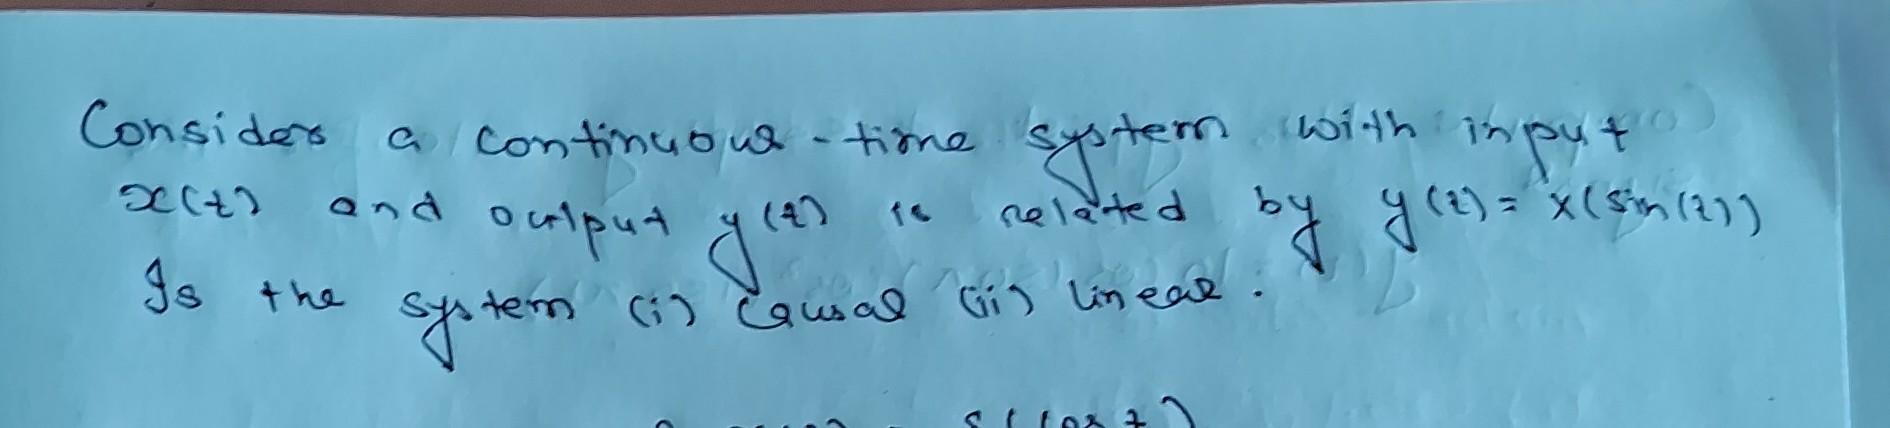 Consider a continuous-time system with input
x(t) and output y(t) is related by y(t) = x(sin(t))
Is the system (i) causal (ii) linear.